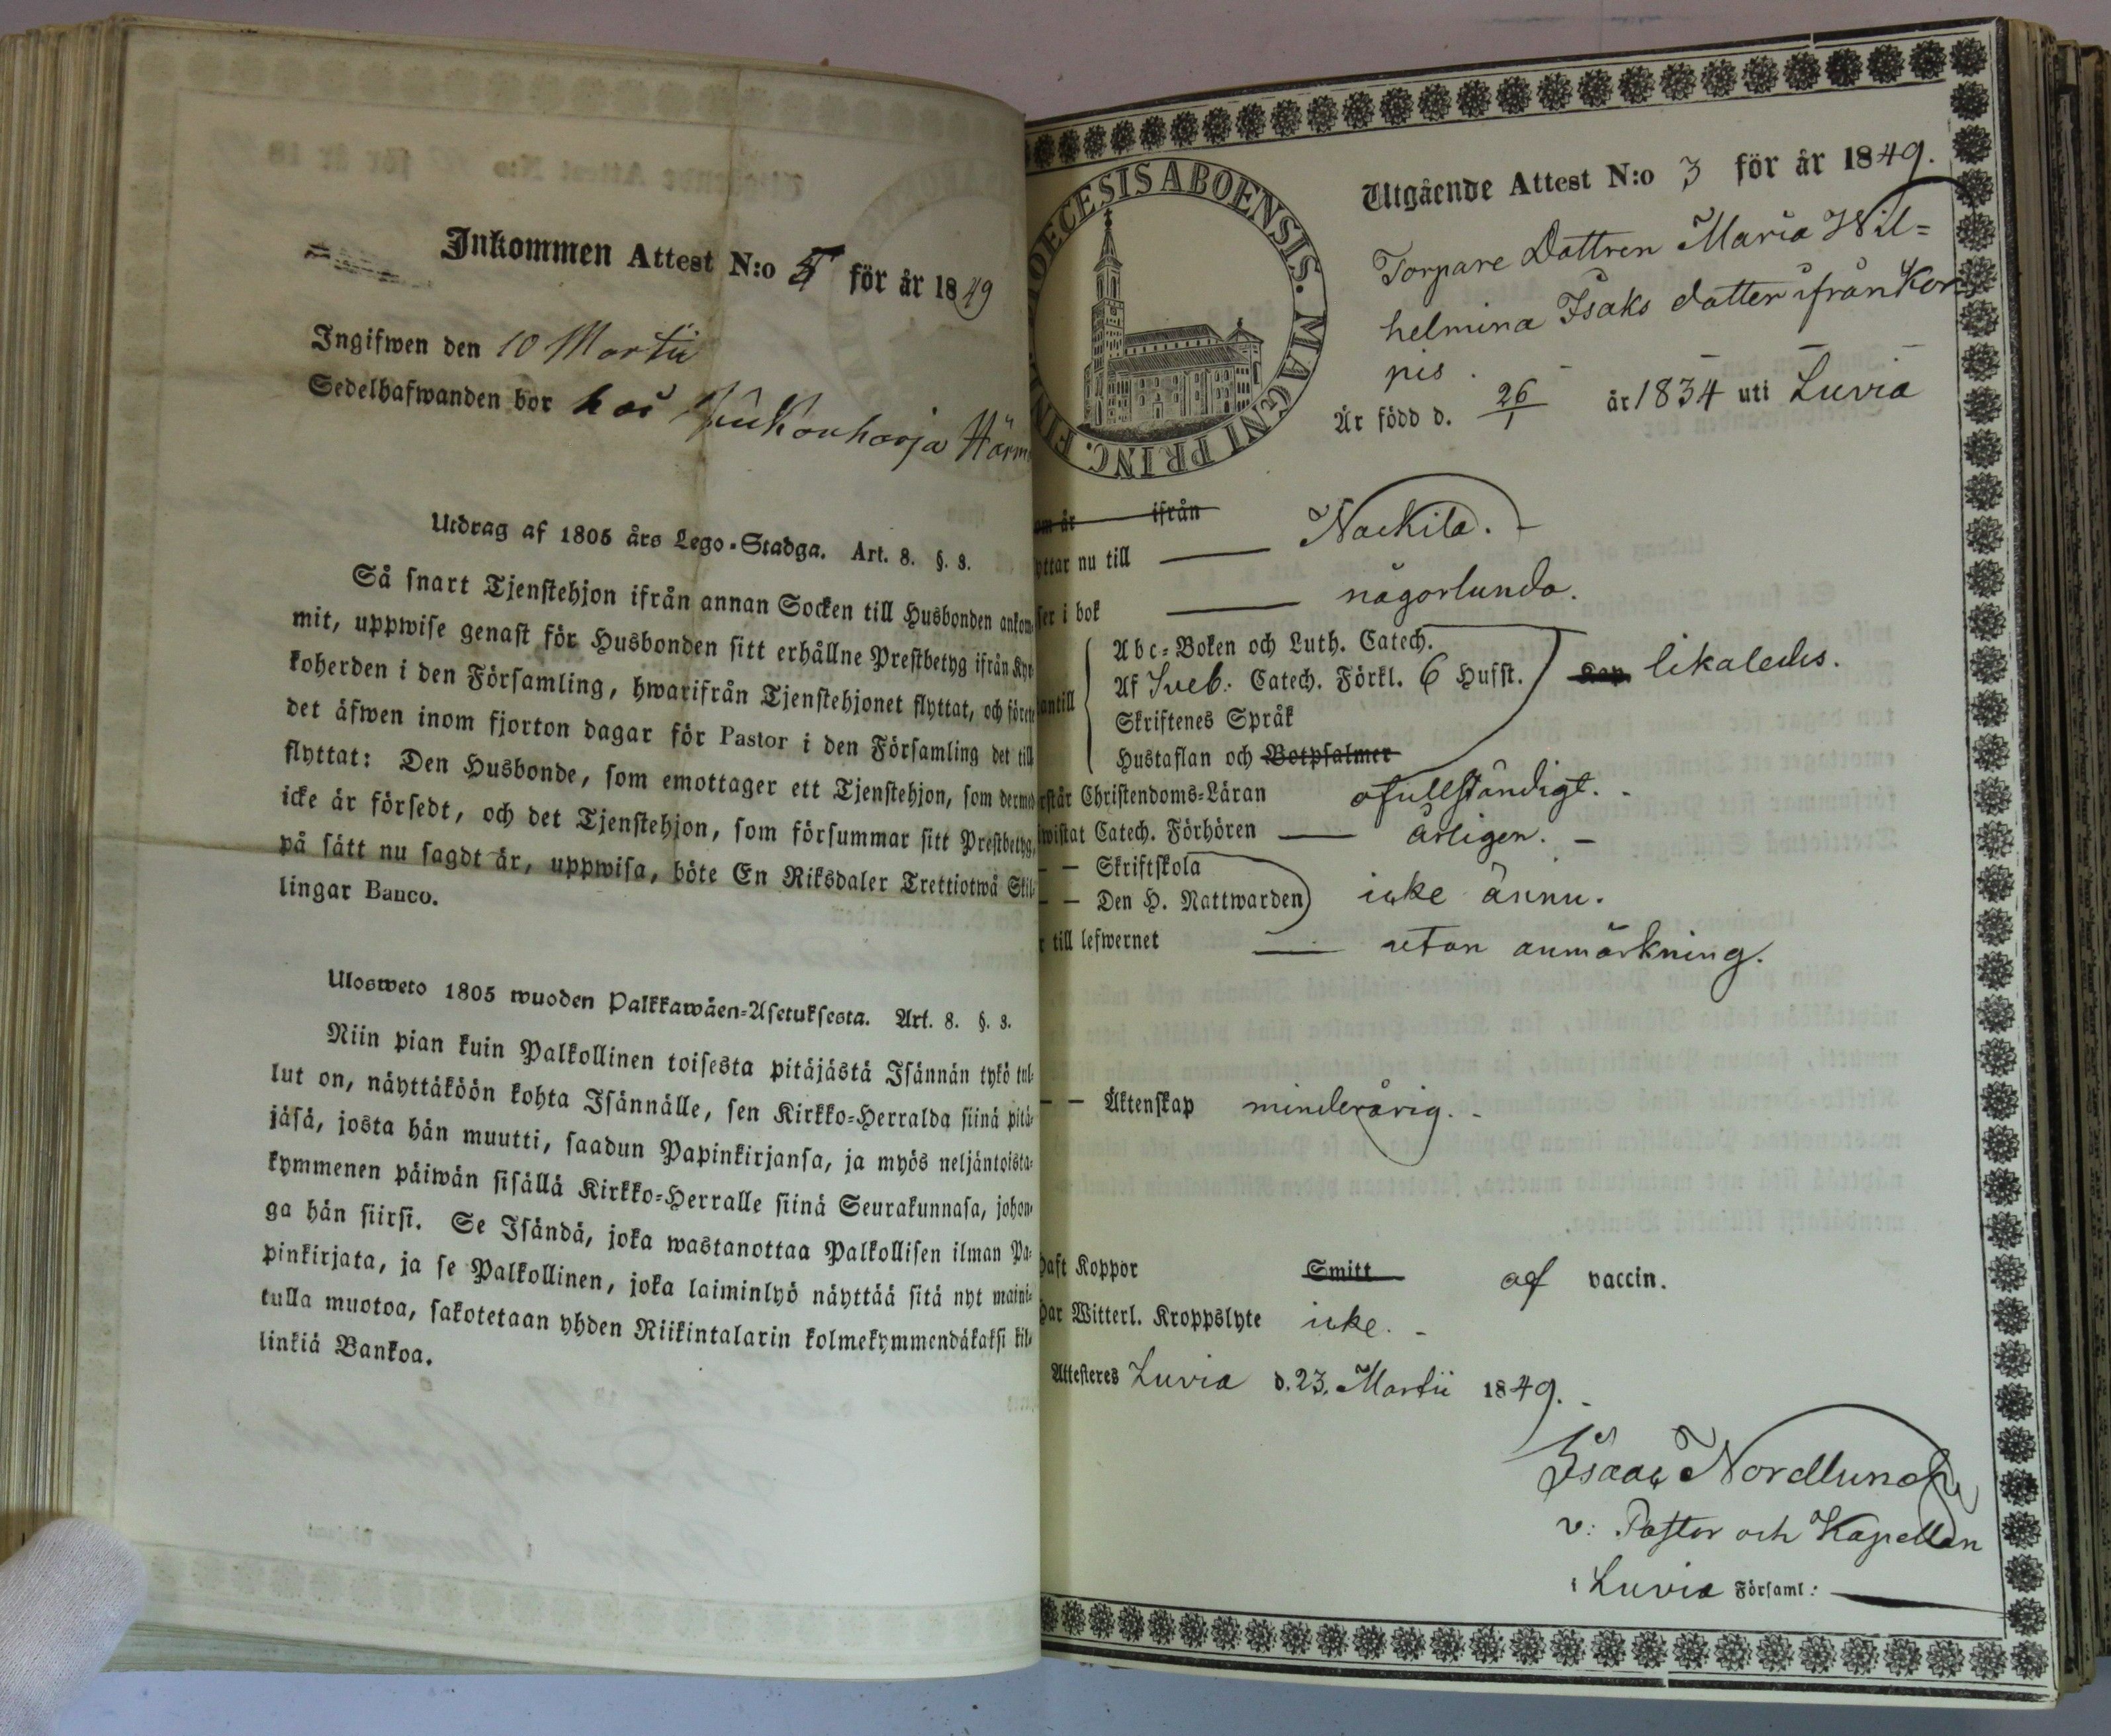 Inkommen Attest N:o 5 för år 1849
Ingifwen den 10 Martii
Sedelhafwanden bor hos
Utdrag af 1805 års Lego-Stadga. Art. 8. §. 3.
Så snart Tjenstehjon ifrån annan Socken till Husbonden ankom-
mit, uppwise genast för Husbonden sitt erhållne Prestbetyg ifrån Kyr-
koherden i den Församling, hwarifrån Tjenstehjonet flyttat, och förete
det äfwen inom fjorton dagar för Pastor i den Församling det till
flyttat: Den Husbonde, som emottager ett Tjenstehjon, som dermed
icke är försedt, och det Tjenstehjon, som försummar sitt Prestbetyg,
på sätt nu sagdt är, uppwisa, böte En Riksdaler Trettiotwå Skil-
lingar Banco.
Ulosweto 1805 wuoden Palkkawäen-Asetuksesta. Art. 8. §. 3.
Niin pian kuin Palkollinen toisesta pitäjästä Isännän tykö tul-
lut on, näyttäköön kohta Isännälle, sen Kirkko-Herralda siinä pitä-
jäsä, josta hän muutti, saadun Papinkirjansa, ja myös neljäntoista-
kymmenen päiwän sisällä Kirkko-Herralle siinä Seurakunnasa, johon-
ga hän siirsi. Se Isändä, joka wastanottaa Palkollisen ilman Pa-
pinkirjata, ja se Palkollinen, joka laiminlyö näyttää sitä nyt maini-
tulla muotoa, sakotetaan yhden Riikintalarin kolmekymmendäkaksi kil-
linkiä Bankoa.
DIOECESIS ABOENSIS. MAGNI PRINC. FIN
Utgående Attest N:o 3 för år 1849.
Torpare Dottren Maria Wil=
helmina Isaks dotter ifrån Kor
pis.
Är född d. 26/1 år 1834 uti Luvia
om är ifrån
yttar nu till Nackila.
ser i bok någorlunda.
Abc=Boken och Luth. Catech.
Af Sveb: Catech. Förkl. 6 Hufst. Kap. likaledes.
antill
Skriftenes Språk
Hustaflan och Botpsalmer
rstår Christendoms-Läran ofullständigt.
iwistat Catech. Förhören årligen.
— Skriftskola
— Den H. Nattwarden icke ännu.
r till lefwernet utan anmärkning.
— Äktenskap minderårig.
haft Koppor Smitt af vaccin.
har Witterl. Kroppslyte icke.
Attesteres Luvia d. 23. Martii 1849.
Isaac Nordlund
v: Pastor och Kapellan
i Luvia Församl: